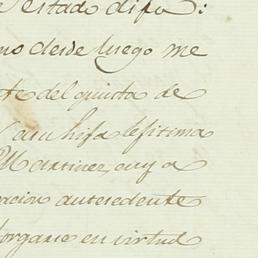 estado dija:
mo desde luego me
te del quinta de
su hija lefitima
Martinez, cuya
cion antesedente
torgane en virtud